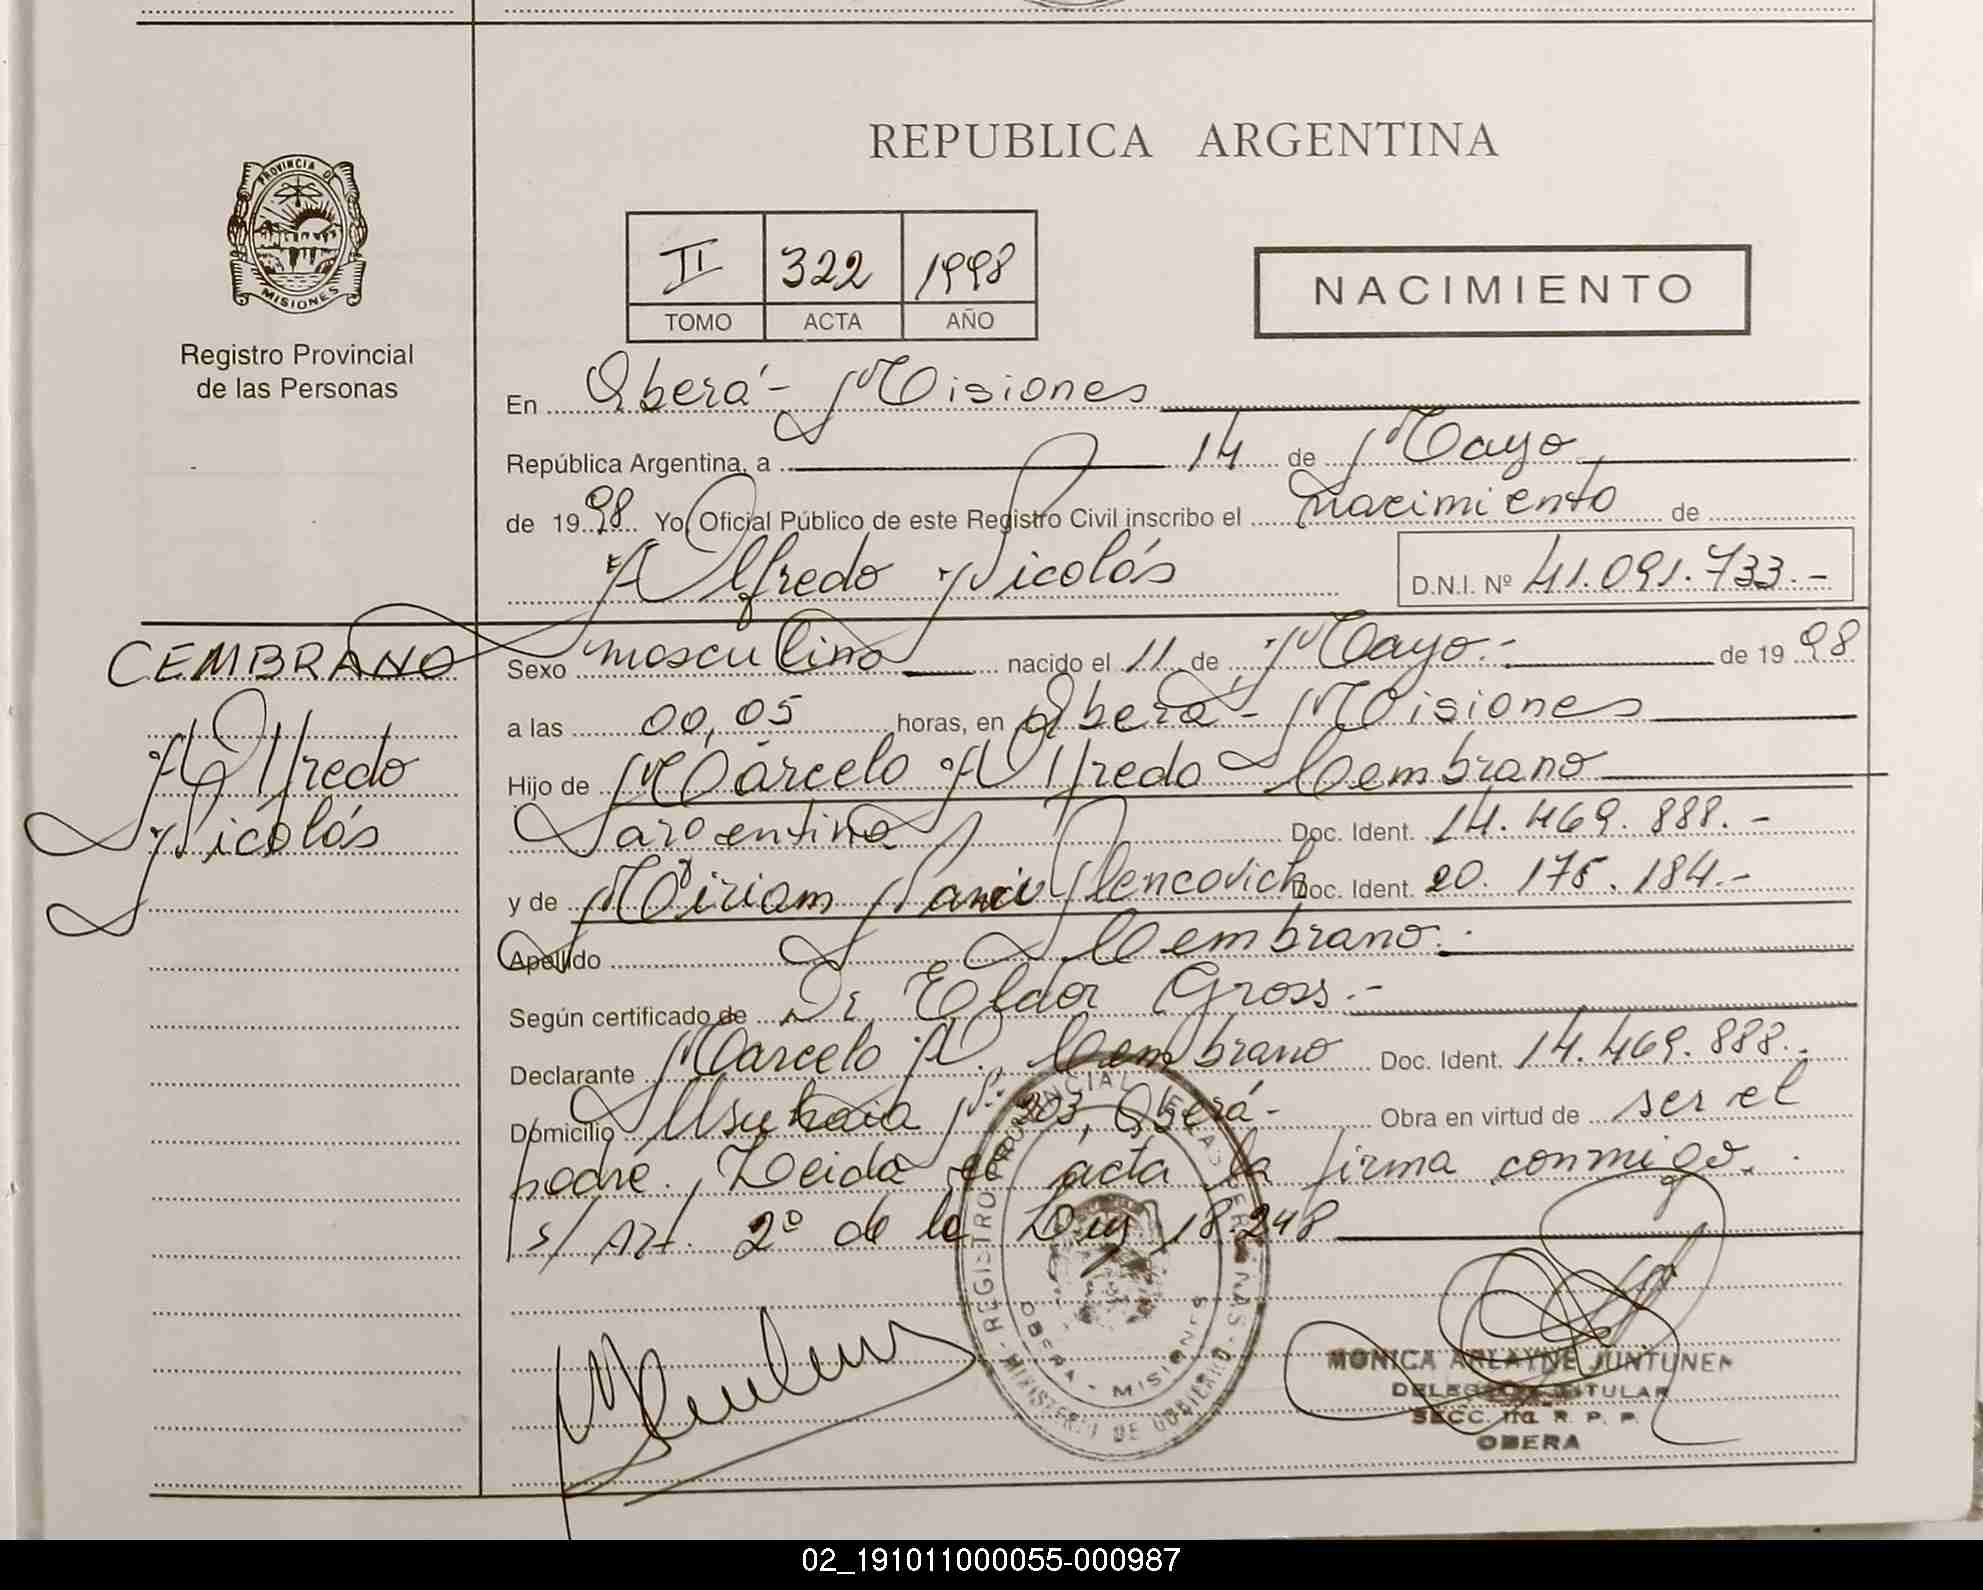 REPUBLICA ARGENTINA
PROVINCIA DE
MISIONES
Registro Provincial
de las Personas
II 322 1998
TOMO ACTA AÑO
NACIMIENTO
En Oberá - Misiones
República Argentina, a 14 de Mayo
de 1998 Yo, Oficial Público de este Registro Civil inscribo el nacimiento de
Alfredo Nicolás D.N.I. Nº 41.091.733.-
CEMBRANO
Alfredo
Nicolás
Sexo masculino nacido el 11 de Mayo.- de 1998
a las 00,05 horas, en Oberá - Misiones
Hijo de Marcelo Alfredo Cembrano
argentina Doc. Ident. 14.469.888.-
y de Miriam Doc. Ident. 20.175.184.-
Apellido Cembrano.-
Según certificado de Dr Eldor Gross.-
Declarante Marcelo A. Cembrano Doc. Ident. 14.469.888.-
Domicilio Ushuaia Nº 303, Oberá - Obra en virtud de ser el
padre. Leida el acta la firma conmigo.
s/ Art. 2º de la Ley 18.248
REGISTRO PROVINCIAL DE LAS PERSONAS - MINISTERIO DE GOBIERNO -
OBERA - MISIONES
MONICA ARLAYNE JUNTUNEN
DELEGADA TITULAR
SECC. 1ra. R. P. P.
OBERA
02_191011000055-000987